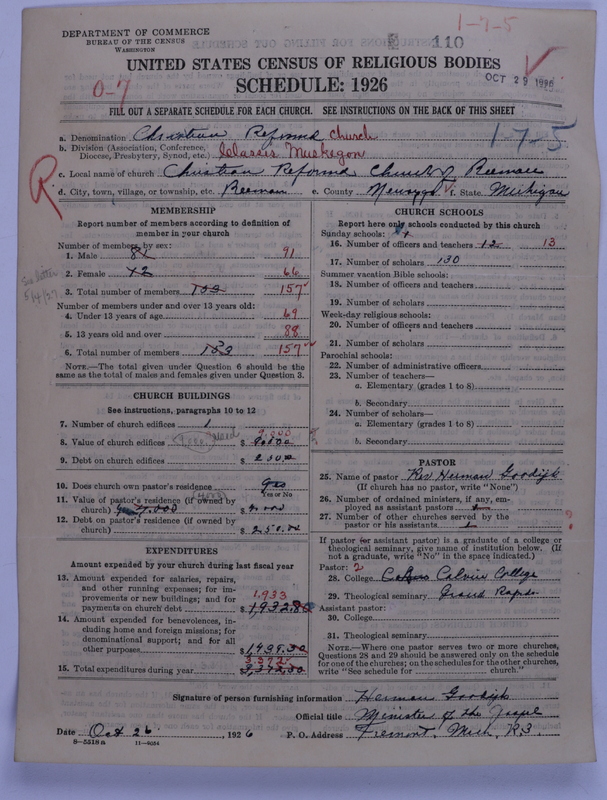 1-7-5
DEPARTMENT OF COMMERCE
BUREAU OF THE CENSUS
WASHINGTON
110
UNITED STATES CENSUS OF RELIGIOUS BODIES
OCT 29 1926
SCHEDULE: 1926
0-7
FILL OUT A SEPARATE SCHEDULE FOR EACH CHURCH. SEE INSTRUCTIONS ON THE BACK OF THIS SHEET
a. Denomination Christian Reformed Church
1-7-5
b. Division (Association, Conference, Diocese, Presbytery, Synod, etc.) Classis Muskegon
c. Local name of church Christian Reformed Church of Reeman
R
d. City, town, village, or township, etc. Reeman e. County Newaygo f. State Michigan
MEMBERSHIP
Report number of members according to definition of
member in your church
Number of members by sex:
1. Male 81 91
2. Female 72 66
See letter
5/14/27
3. Total number of members 153 157
Number of members under and over 13 years old:
4. Under 13 years of age 69
5. 13 years old and over 88
6. Total number of members 153 157
NOTE.—The total given under Question 6 should be
same as the total of males and females given under Question 3.
CHURCH BUILDINGS
See instructions, paragraphs 10 to 12
7. Number of church edifices 1
8. Value of church edifices $ 9,000
9. Debt on church edifices $
10. Does church own pastor's residence? Yes
Yes or No
11. Value of pastor's residence (if owned by
church) $
12. Debt on pastor's residence (if owned by
church) $ 250.00
EXPENDITURES
Amount expended by your church during last fiscal year
13. Amount expended for salaries, repairs,
and other running expenses; for im-
provements or new buildings; and for
payments on church debt 1,933
$ 1,932.80
14. Amount expended for benevolences, in-
cluding home and foreign missions; for
denominational support; and for all
other purposes $
15. Total expenditures during year 3,372
$ 3,372.30
CHURCH SCHOOLS
Report here only schools conducted by this church
Sunday schools: 1
16. Number of officers and teachers 12 13
17. Number of scholars 130
Summer vacation Bible schools:
18. Number of officers and teachers
19. Number of scholars
Week-day religious schools:
20. Number of officers and teachers
21. Number of scholars
Parochial schools:
22. Number of administrative officers
23. Number of teachers—
a. Elementary (grades 1 to 8)
b. Secondary
24. Number of scholars—
a. Elementary (grades 1 to 8)
b. Secondary
PASTOR
25. Name of pastor Rev Herman Goodijk
(If church has no pastor, write "None")
26. Number of ordained ministers, if any, em-
ployed as assistant pastors
27. Number of other churches served by the
pastor or his assistants ?
If pastor (or assistant pastor) is a graduate of a college or
theological seminary, give name of institution below. (If
not a graduate, write "No" in the space indicated.)
Pastor: 2
28. College Calvin College
29. Theological seminary Grand Rapids
Assistant pastor:
30. College
31. Theological seminary
NOTE.—Where one pastor serves two or more churches,
Questions 28 and 29 should be answered only on the schedule
for one of the churches; on the schedules for the other churches,
write "See schedule for church."
Signature of person furnishing information Herman Goodijk
Official title Minister of the Gospel
Date Oct 26, 1926 P. O. Address Fremont, Mich. R.3
8-5518a 11-8034